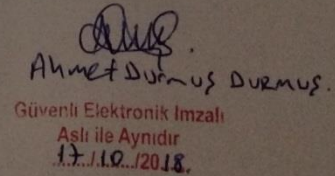 Ahmet Durmuş DURMUŞ.
Güvenli Elektronik İmzalı
Aslı ile Aynıdır
17./10./2018.